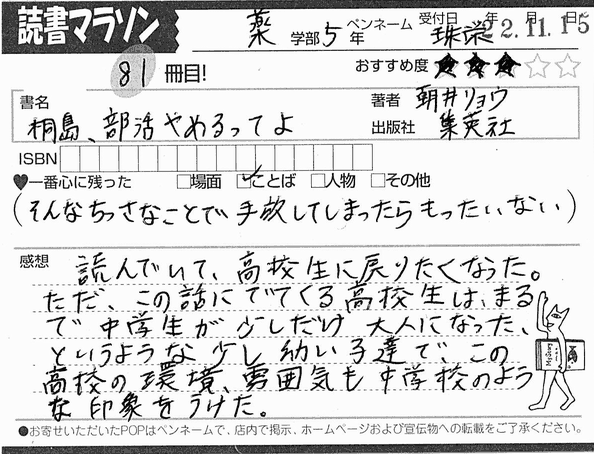 読書マラソン
薬 学部 5年 ペンネーム 珠栄 受付日 22年11月15日
81冊目!
おすすめ度 ★★★☆☆
書名 桐島、部活やめるってよ
著者 朝井リョウ
出版社 集英社
ISBN
♥一番心に残った □場面 ☑ことば □人物 □その他
(そんなちっさなことで手放してしまったらもったいない)
感想 読んでいて、高校生に戻りたくなった。
ただ、この話にでてくる高校生は、まる
で中学生が少しだけ大人になった、
というような少し幼い子達で、この
高校の環境、雰囲気も中学校のよう
な印象をうけた。
●お寄せいただいたPOPはペンネームで、店内で掲示、ホームページおよび宣伝物への転載をご了承ください。